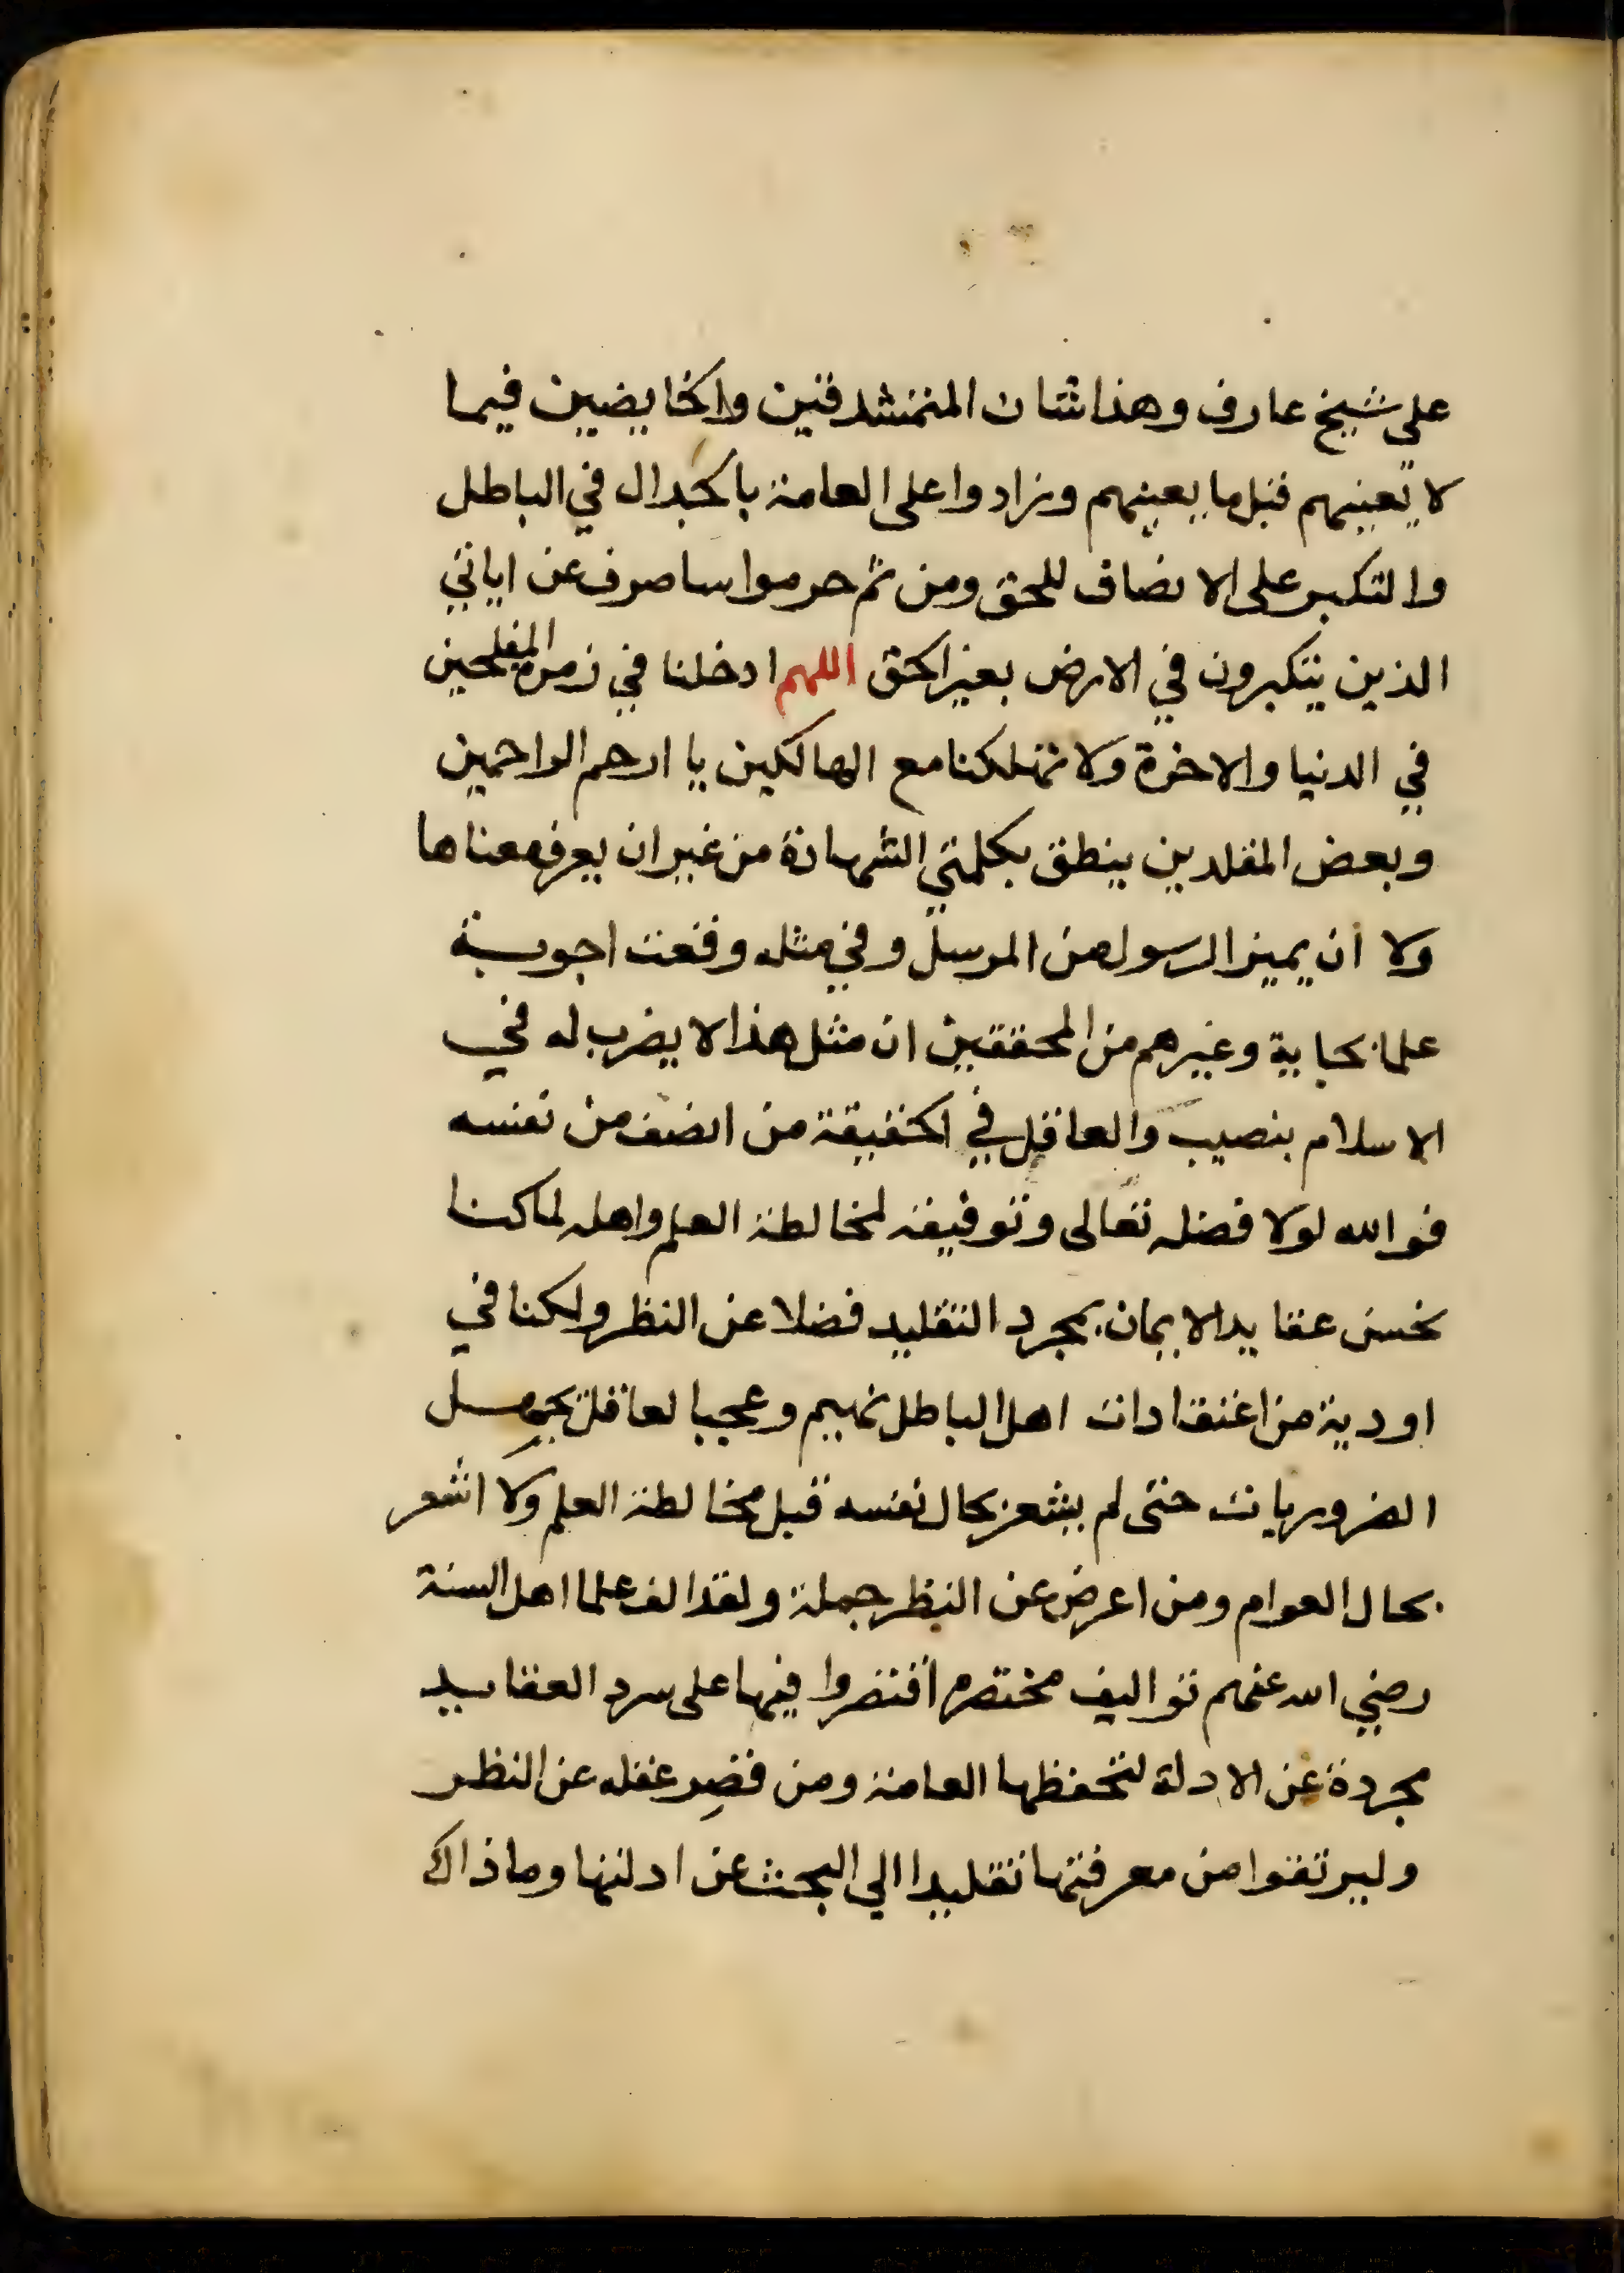 علي شيخ عارف وهذا شان المتمشدقين والخايضين فيما
لا يعنيهم قبل ما يعينهم وزادوا على العامة بالجدال في الباطل
والتكبر على الانصاف للحق ومن ثم حرموا ساصرف عن اياتي
الذين يتكبرون في الارض بغير الحق اللهم ادخلنا في زمرة المفلحين
في الدنيا والاخرة ولا تهلكنا مع الهالكين يا ارحم الراحمين
وبعض المقلدين ينطق بكلمتي الشهادة من غير ان يعرف معناها
ولا ان يميز الرسول من المرسل وفي مثله وقعت اجوبة
علما بجاية وغيرهم من المحققين ان مثل هذا لا يضرب له في
الاسلام بنصيب والعاقل في الحقيقة من انصف من نفسه
فوالله لولا فضله تعالى وتوفيقه لمخالطة العلم واهله لما كنا
نحسن عقايد الايمان بمجرد التقليد فضلا عن النظر ولكنا في
اودية من اعتقادات اهل الباطل نهيم وعجبا لعاقل يجهل
الضروريات حتى لم يشعر بحال نفسه قبل مخالطة العلم ولا اشعر
بحال العوام ومن اعرض عن النظر جملة ولقد الف علما اهل السنة
رضي الله عنهم تواليف مختصرة اقتصروا فيها على سرد العقايد
مجردة عن الادلة لتحفظها العامة ومن قصر عقله عن النظر
وليرتقوا من معرفتها تقليدا الي البحث عن ادلتها وما ذاك